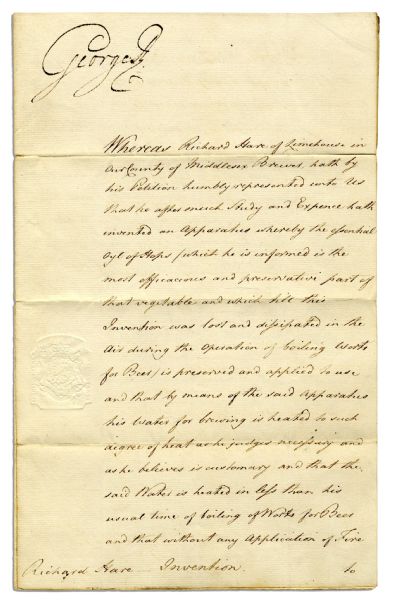 George R.
Whereas Richard Hare of Limehouse in
Our County of Middlesex Brewer, hath by
his Petition humbly represented unto Us
that he after much Study and Expence hath
invented an Apparatus whereby the essential
Oyl of Hops (which he is informed is the
most efficacious and preservative part of
that vegetable and which till this
Invention was lost and dissipated in the
Air during the Operation of boiling Worts
for Beer) is preserved and applied to use
and that by means of the said Apparatus
his Water for brewing is heated to such
degree of heat as he judges necessary and
as he believes is customary and that the
said Water is heated in less than his
usual time of boiling of Worts for Beer
and that without any Application of Fire
Richard Hare Invention. to